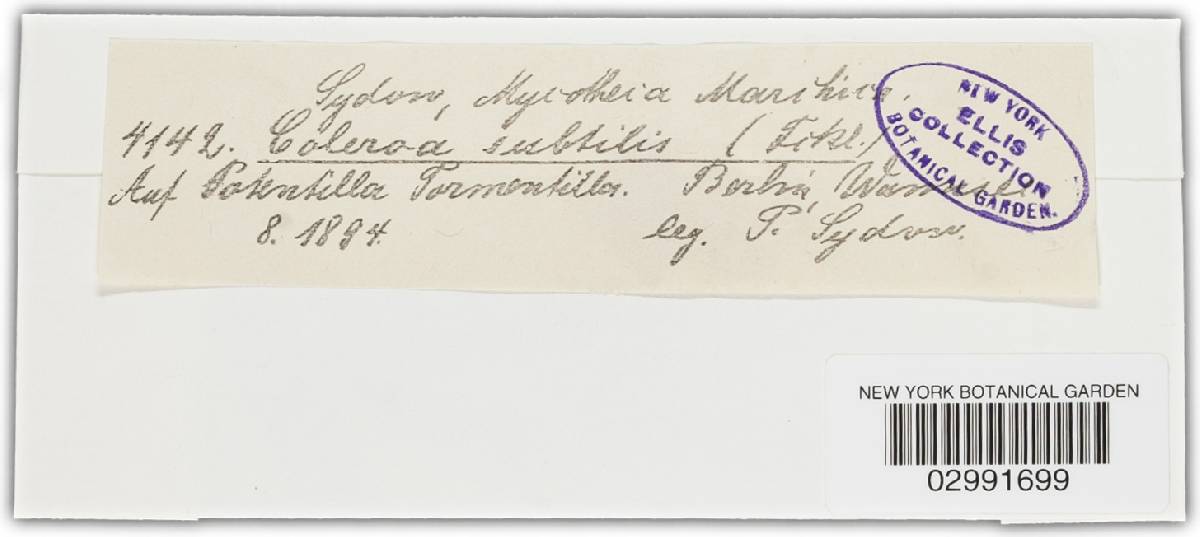 Sydow, Mycotheca Marchica.
4142. Coleroa subtilis (Fckl.)
Auf Potentilla Tormentilla. Berlin, Wannsee
8. 1894. leg. P. Sydow.
NEW YORK
ELLIS
COLLECTION
BOTANICAL GARDEN.
NEW YORK BOTANICAL GARDEN
02991699